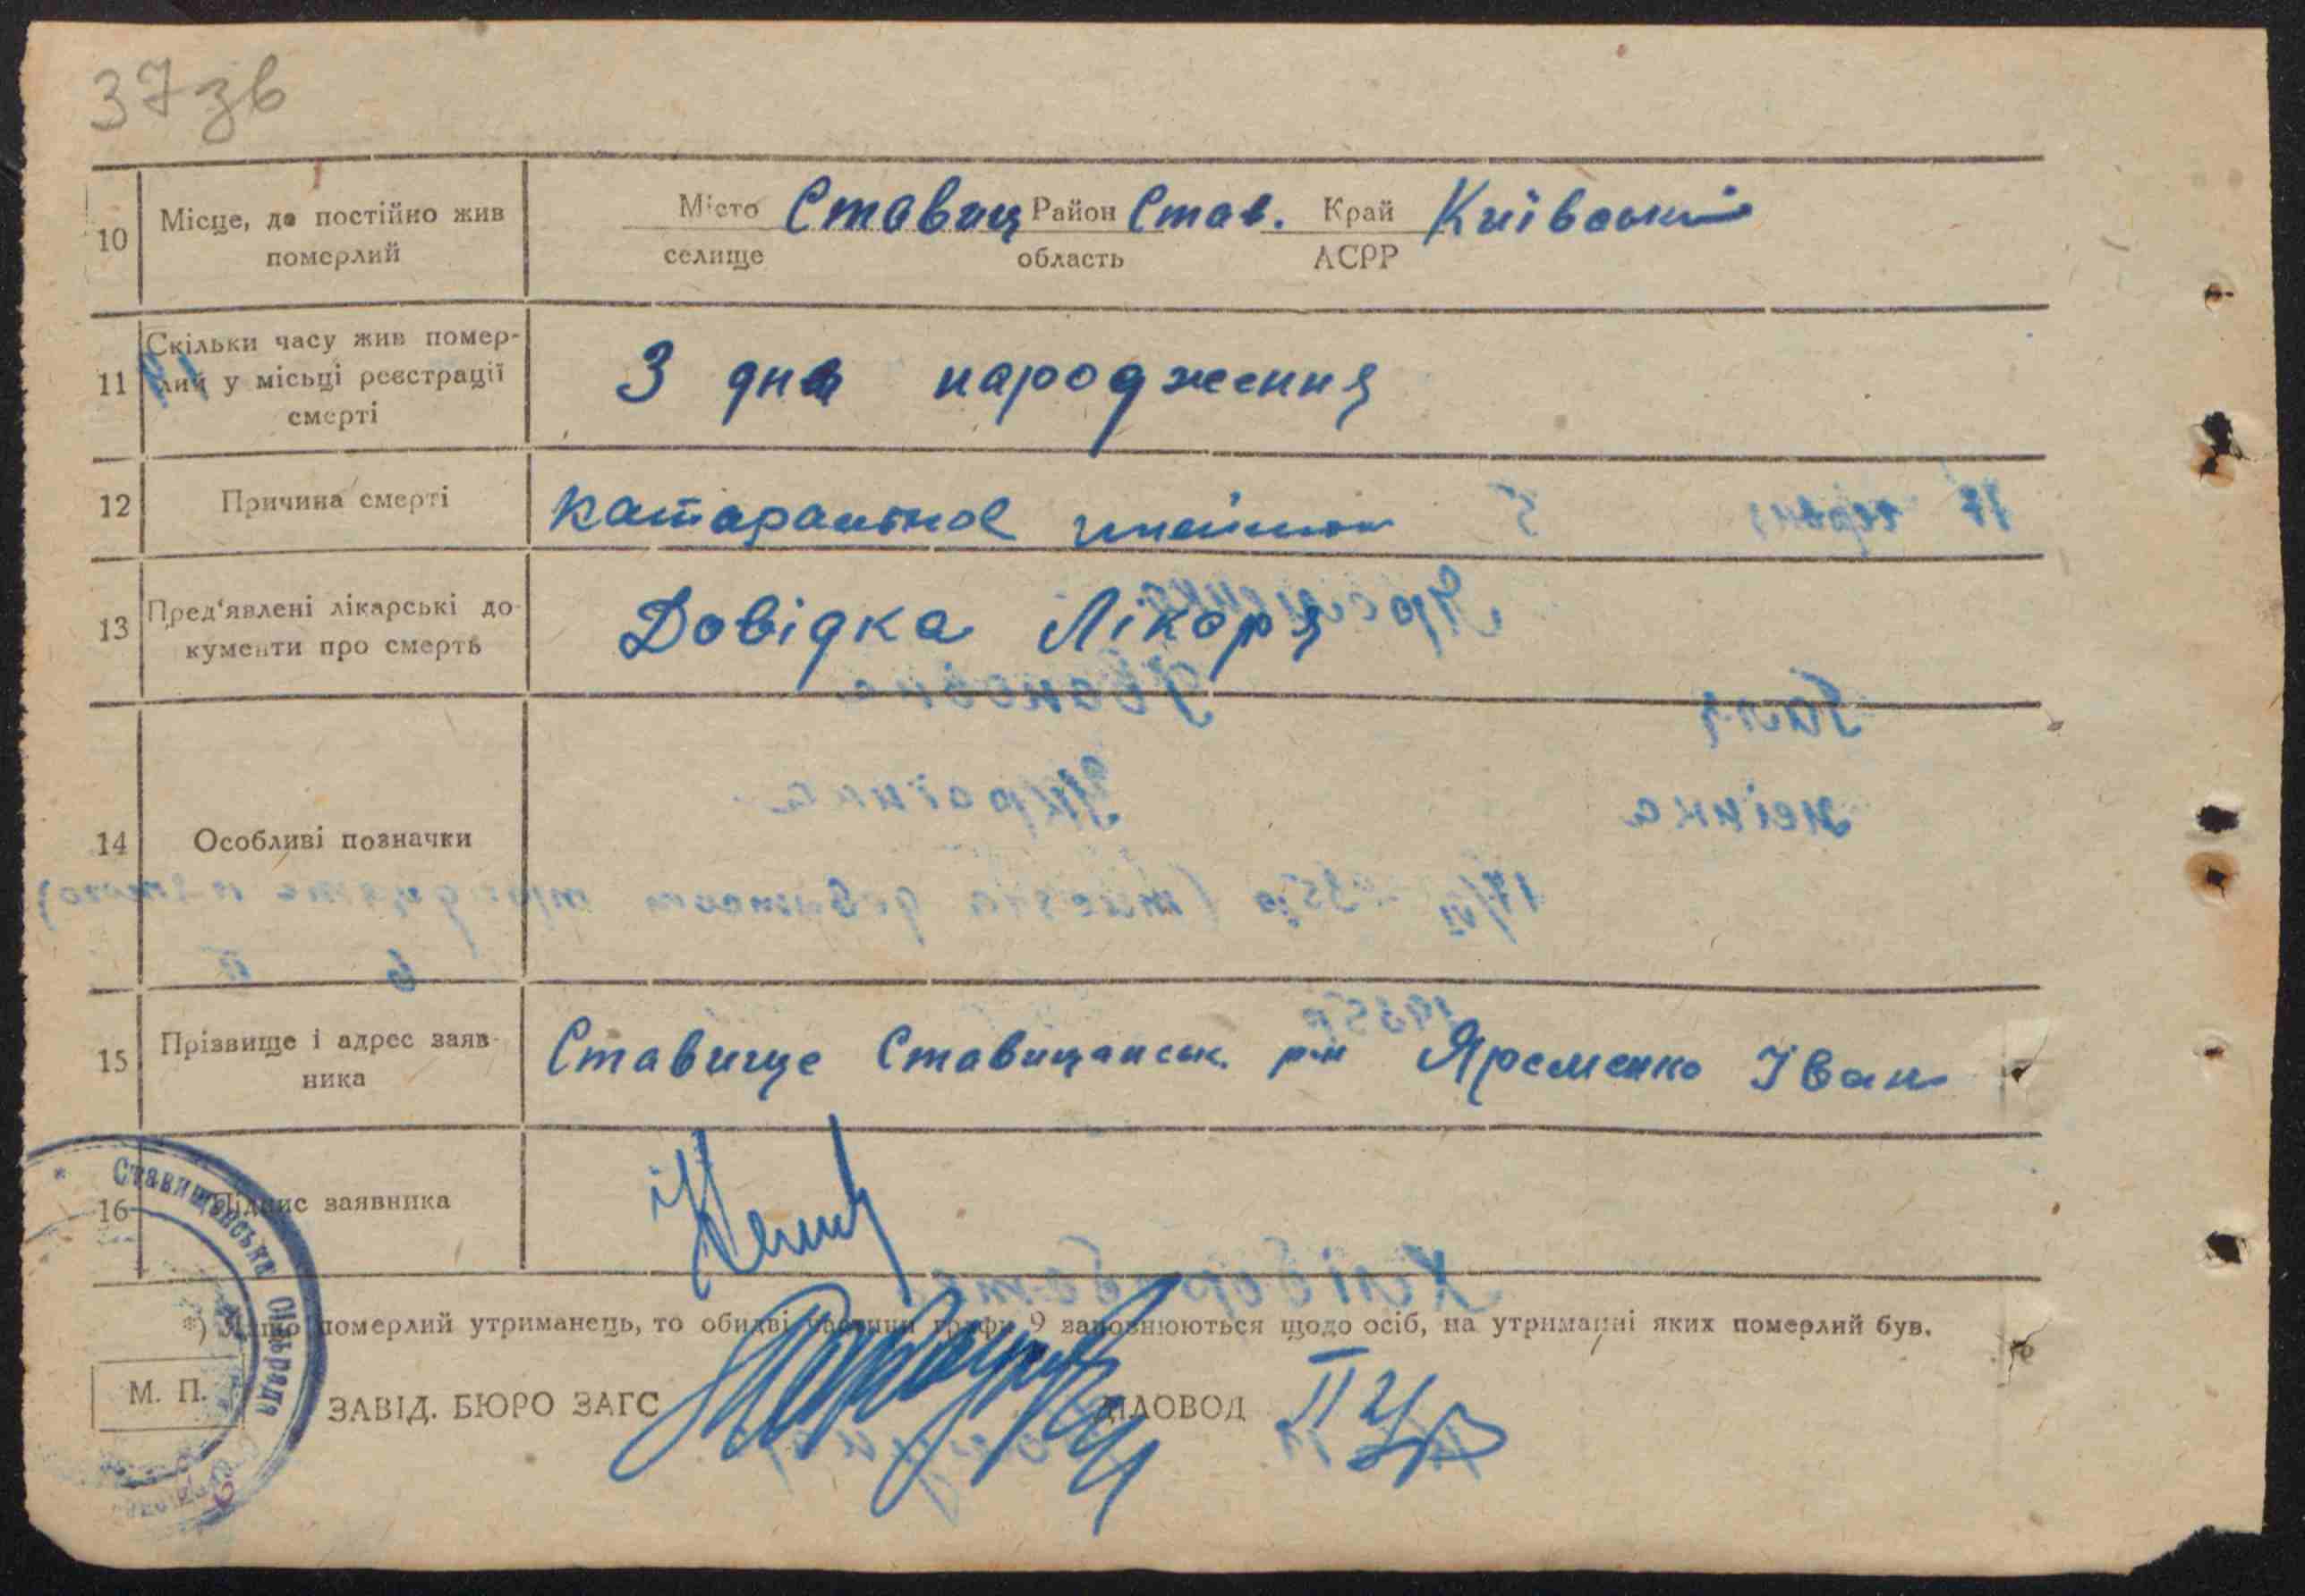 37зв
10 Місце, де постійно жив померлий
Місто Ставищ Район Став. Край Київській
селище область АСРР
11 Скільки часу жив помер-
лий у місьці реєстрації
смерті
З дня народження
12 Причина смерті
катаральное
13 Пред'явлені лікарські до-
кументи про смерть
Довідка Лікаря
14 Особливі позначки
15 Прізвище і адрес заяв-
ника
Ставище Ставищанськ. р-н Яременко Іван
16 Підпис заявника
*) Якщо померлий утриманець, то обидві частини графи 9 заповнюються щодо осіб, на утриманні яких померлий був.
М. П.
ЗАВІД. БЮРО ЗАГС ДІЛОВОД
Ставищанська Сільрада